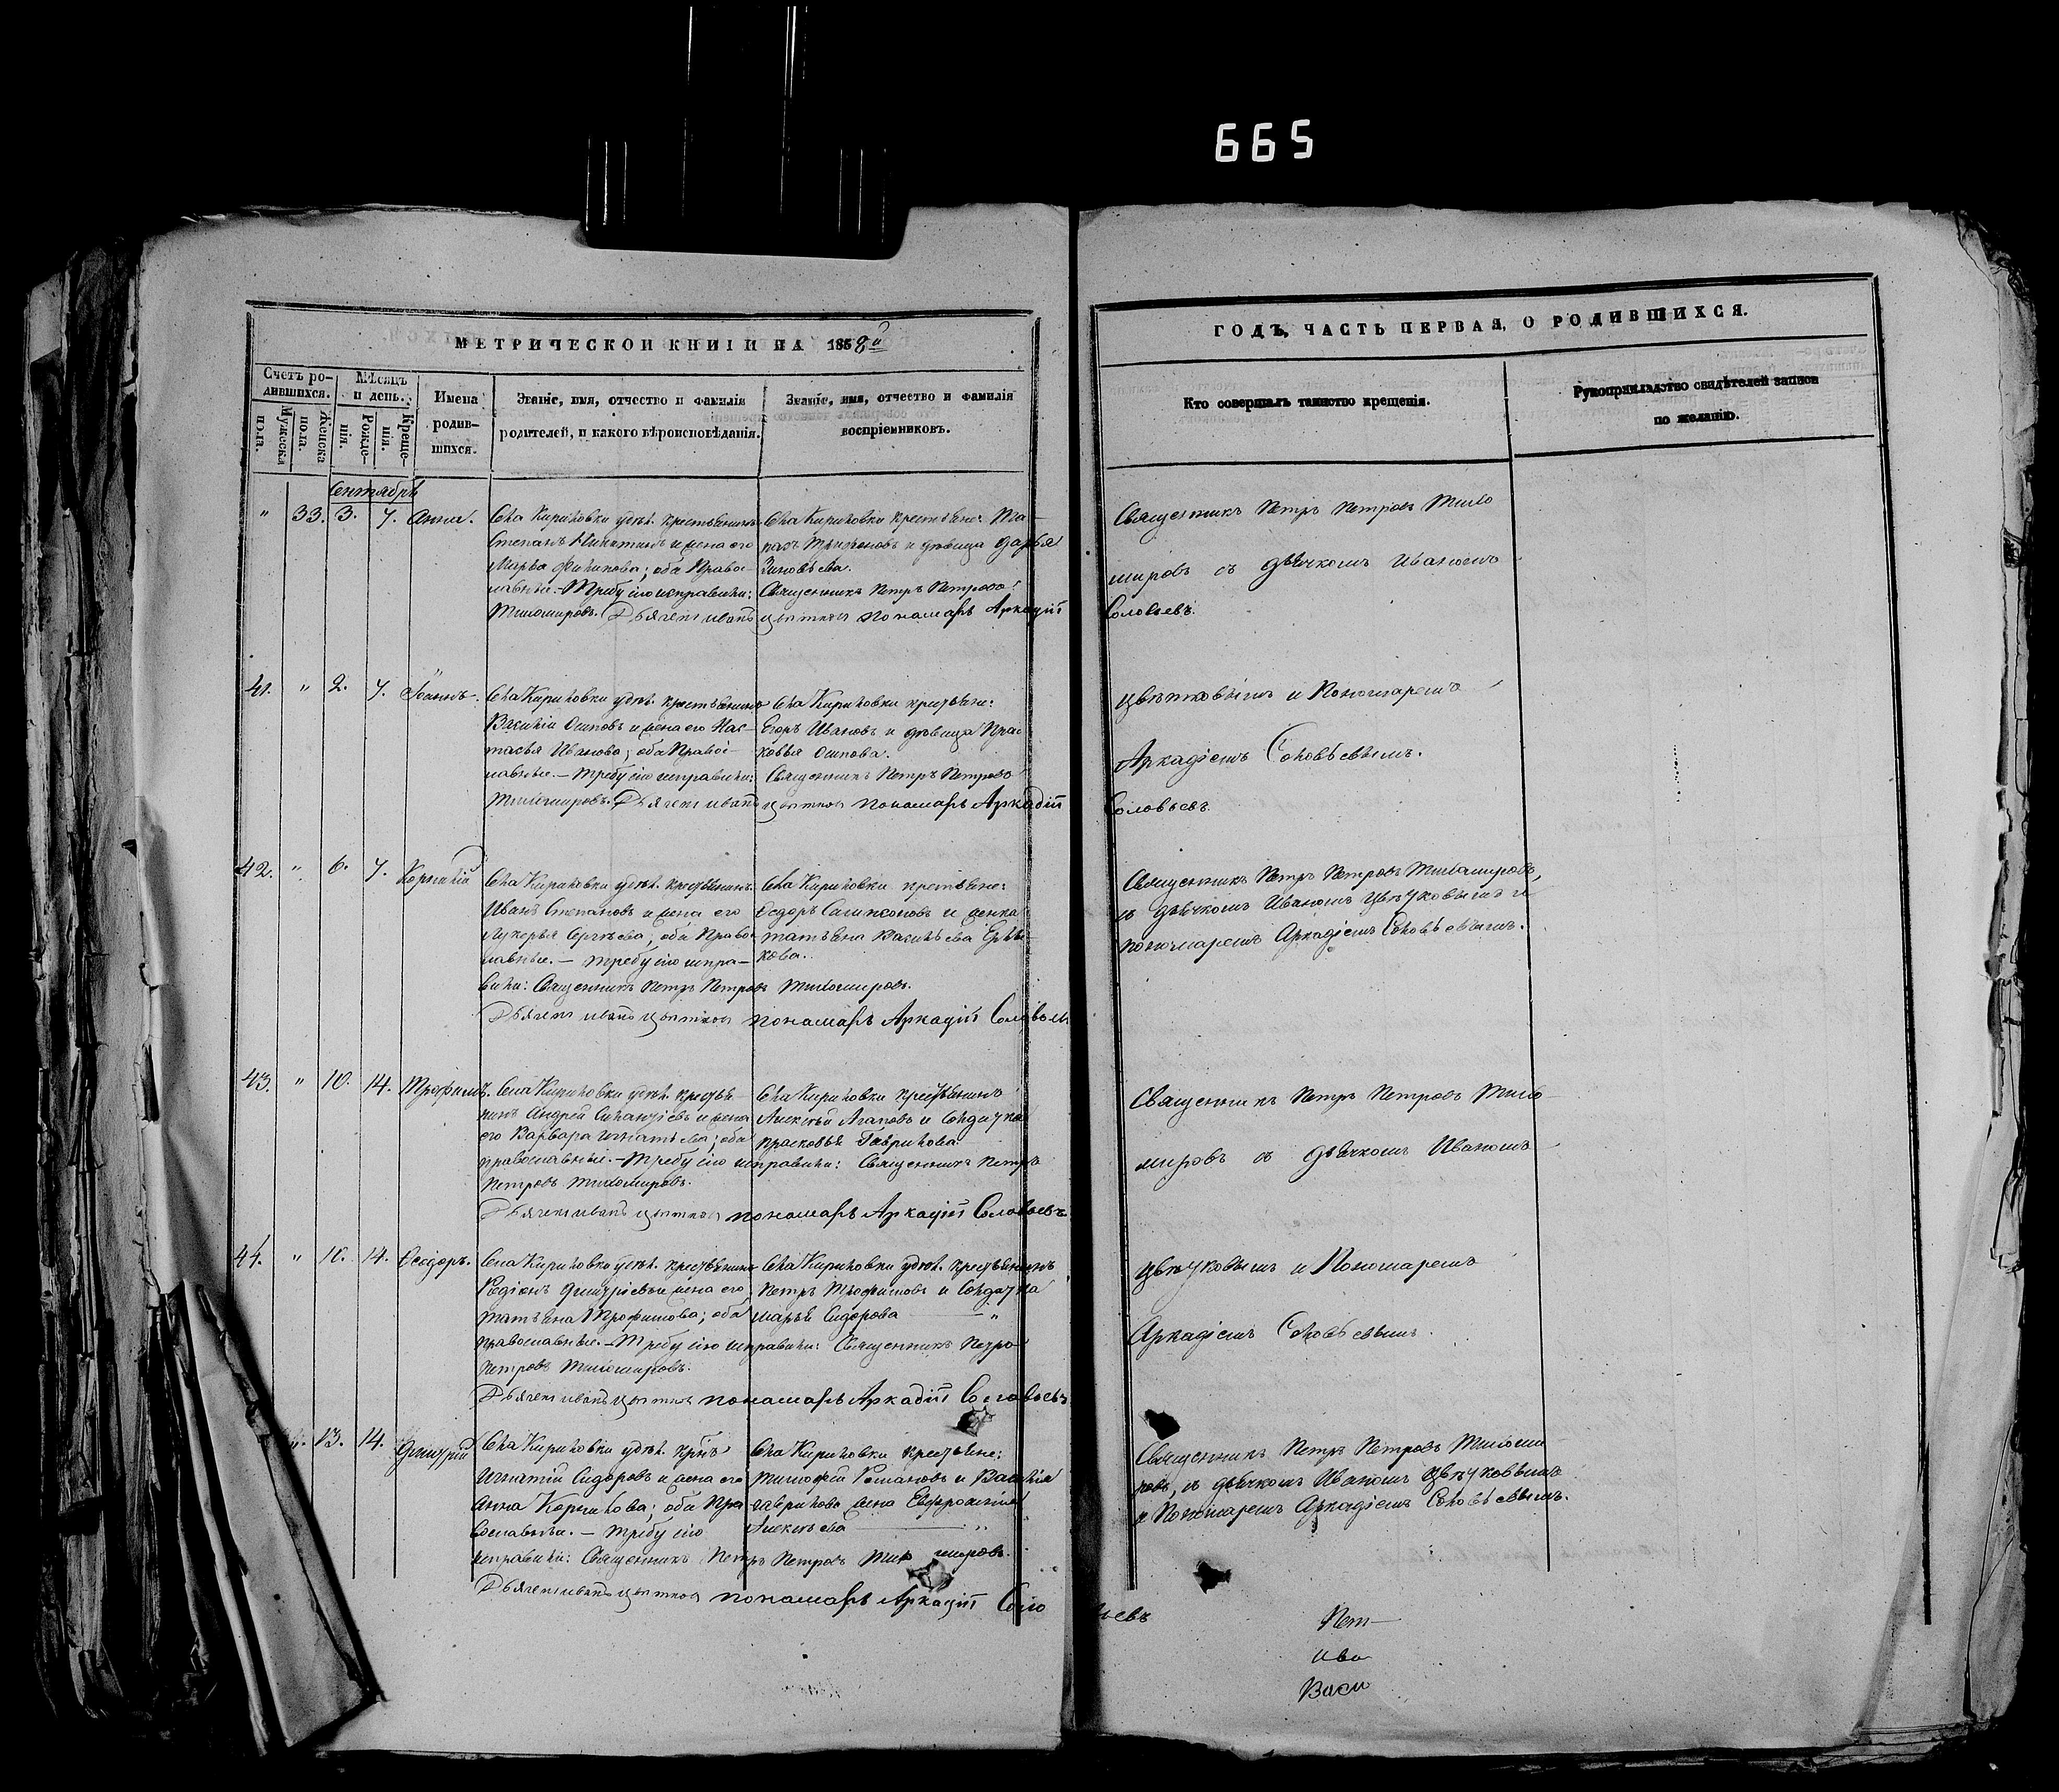 665
МЕТРИЧЕСКОЙ КНИГИ НА 1858й
ГОДЪ, ЧАСТЬ ПЕРВАЯ, О РОДИВШИХСЯ.
Счетъ ро-
дившихся.
Мужеска
пола.
Женска
пола.
Мѣсяцъ
и день.
Рожде-
нія.
Креще-
нія.
Имена
родив-
шихся.
Званіе, имя, отчество и фамилія
родителей, и какого вѣроисповѣданія.
Званіе, имя, отчество и фамилія
воспріемниковъ.
Кто совершалъ таинство крещенія.
Рукоприкладство свидѣтелей записи
по желанію.
Сентябрь
" 33. 3. 7. Анна.
Села Кириловки удѣл. крестьянинъ
Степанъ Никитинъ и жена его
Марѳа Филипова; оба Право-
лавные. – Требу сію исправили:
Тихомировъ. Дьячекъ Иванъ
Села Кириловки крестьяне: Та-
расъ Трифоновъ и дѣвица Дарья
Зиновьева.
Священникъ Петръ Петровъ
Цвѣтков пономарь Аркадій
Соловьевъ.
Священникъ Петръ Петровъ Тихо
мировъ съ дьячкомъ Иваномъ
41. " 2. 7. Іоаннъ.
Села Кириловки удѣл. крестьянинъ
Василій Осиповъ и жена его Нас-
тасья Иванова; оба Право-
лавные. – Требу сію исправили:
Тихомировъ. Дьячекъ Иванъ
Села Кириловки крестьяне:
Егоръ Ивановъ и дѣвица Прас-
ковья Осипова.
Священникъ Петръ Петровъ
Цвѣтков пономарь Аркадій
Соловьевъ.
Цвѣтковымъ и Пономаремъ
Аркадіемъ Соловьевымъ.
42. " 6. 7. Корнилій
Села Кириловки удѣл. крестьянинъ
Иванъ Степановъ и жена его
Лукерья Сергѣева; оба Право-
лавные. – Требу сію испра-
вили: Священникъ Петръ Петровъ Тихомировъ.
Дьячекъ Иванъ Цвѣтков пономарь Аркадій Соловьев
Села Кириловки крестьяне:
Ѳедоръ Самисоновъ и женка
Татьяна Васильева
кова.
Священникъ Петръ Петровъ Тихомировъ,
съ дьячкомъ Иваномъ Цвѣтковымъ и
пономаремъ Аркадіемъ Соловьевымъ.
43. " 10. 14. Трофимъ.
Села Кириловки удѣл. крестья-
нинъ Андрей Силантіевъ и жена
его Варвара Игнатьева; оба
православные. – Требу сію исправили: Священникъ Петръ
Петровъ Тихомировъ.
Дьячекъ Иванъ Цвѣтков пономарь Аркадій Соловьевъ
Села Кириловки крестьянинъ
Алексѣй Агаповъ и солдатка
Прасковья Гаврилова
Священникъ Петръ Петровъ Тихо
мировъ съ дьячкомъ Иваномъ
44. " 10. 14. Ѳеодоръ.
Села Кириловки удѣл. крестьянинъ
Родіонъ Дмитріевъ и жена его
Татьяна Трофимова; оба
православные. – Требу сію исправили: Священникъ Петръ
Петровъ Тихомировъ.
Дьячекъ Иванъ Цвѣтков пономарь Аркадій Соловьевъ
Села Кириловки удѣл. крестьянинъ
Петръ Трофимовъ и солдатка
Марья Сидорова "
Цвѣтковымъ и Пономаремъ
Аркадіемъ Соловьевымъ.
". 13. 14. Дмитрій
Села Кириловки удѣл. крест.
Игнатій Сидоровъ и жена его
Анна Корнилова; оба Пра
вославные. – Требу сію
исправили: Священникъ Петръ Петровъ Тихомировъ.
Дьячекъ Иванъ Цвѣтков пономарь Аркадій Соло
вьевъ
Села Кириловки крестьяне:
Тимофей Романовъ и Василія
Гаврилова жена Евфросинія
Алексѣева "
Священникъ Петръ Петровъ Тихоми
ровъ, съ дьячкомъ Иваномъ Цвѣтковымъ
и Пономаремъ Аркадіемъ Соловьевымъ.
Пет-
Ива
Васи